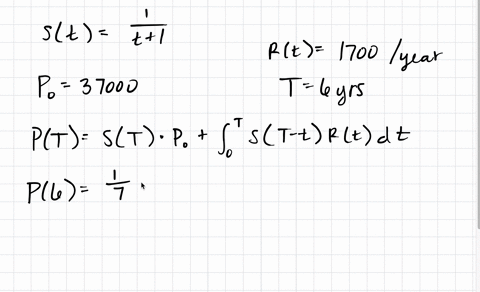 S(t) = 1/(t+1)
R(t) = 1700 /year
P₀ = 37000
T = 6 yrs
P(T) = S(T) · P₀ + ∫₀ᵀ S(T-t) R(t) dt
P(6) = 1/7 ·